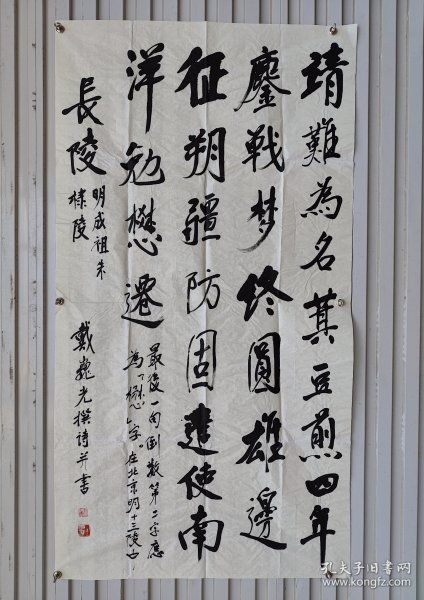 靖難為名萁豆煎四年
鏖戰梦终圓雄邊
征朔疆防固遣使南
洋勉懋遷
最後一句倒數第二字應
為「懋」字。在北京明十三陵
長陵
明成祖朱
棣陵
戴巍光撰詩并書
孔夫子旧书网
www.kongfz.com